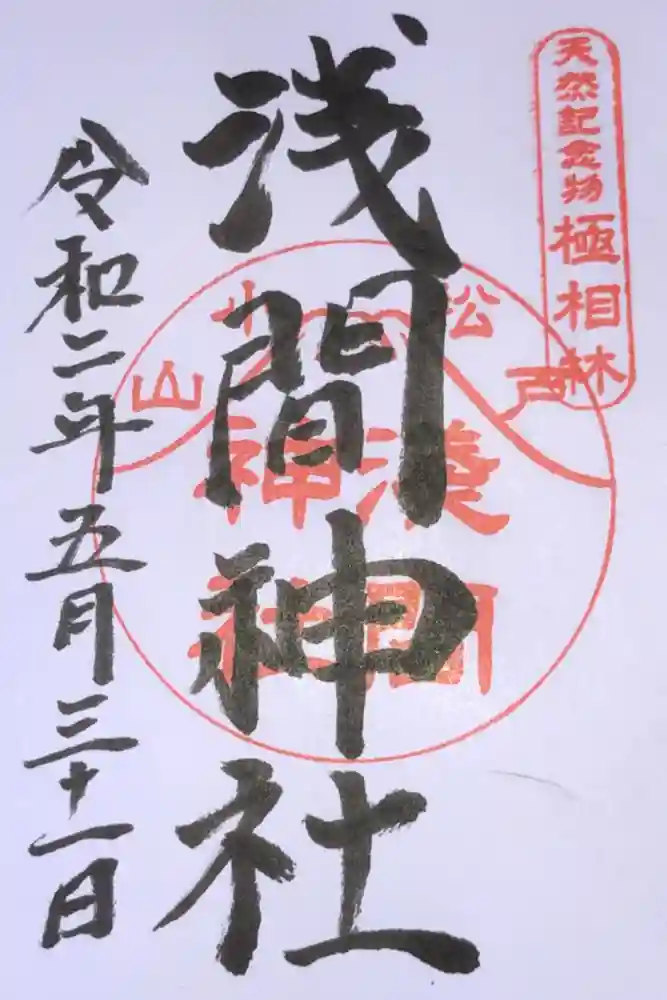 天然記念物 極相林
浅間神社
松戸小山
淺間
神社
令和二年五月三十一日